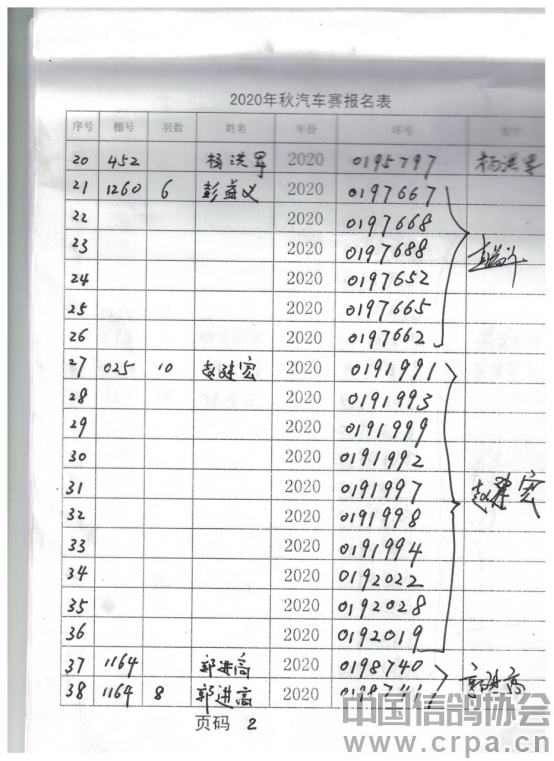 2020年秋汽车赛报名表
序号 棚号 羽数 姓名 年份 环号 签字
20 452 杨洪军 2020 0195797 杨洪军
21 1260 6 彭益义 2020 0197667
22 2020 0197668
23 2020 0197688
24 2020 0197652
25 2020 0197665
26 2020 0197662
27 025 10 赵建宏 2020 0191991
28 2020 0191993
29 2020 0191999
30 2020 0191992
31 2020 0191997 赵建宏
32 2020 0191998
33 2020 0191994
34 2020 0192022
35 2020 0192028
36 2020 0192019
37 1164 郭进高 2020 0198740 郭进高
38 1164 8 郭进高 2020 0198741
页码 2
中国信鸽协会
www.crpa.cn